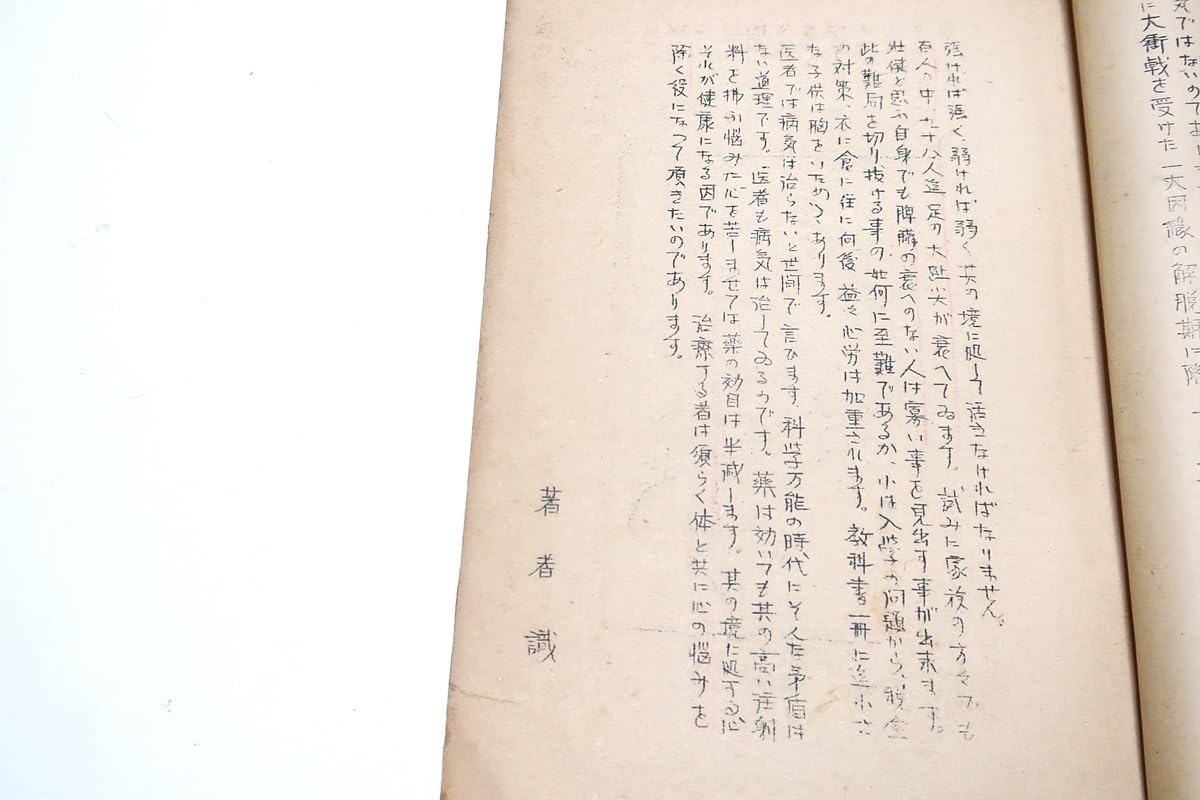 文ではないので
に大衝戟を受けた一大因縁の解脱期に際
強ければ強く、弱ければ弱く其の境に処して活きなければなりません。
百人の中、九十八人迄足の大趾尖が衰へてゐます。試みに家族の方々でも
壮健と思ふ自身でも脾臓の衰へのない人は寡い事を見出す事が出来ます。
此の難局を切り抜ける事の如何に至難であるか、小は入学の問題から、税金
の対策、衣に食に住に何後益々心労は加重されます。教科書一冊に迄小さ
な子供は胸をいためつゝあります。
医者では病気は治らないと世間で言ひます、科学万能の時代にそんな矛盾は
ない道理です。医者も病気は治してゐるのです。薬は効いても其の高い注射
料を拂ふ悩みた心を苦しませては薬の効目は半減します。其の境に処する心
それが健康になる因であります。治療する者は須らく体と共に心の悩みを
除く役になつて頂きたいのであります。
著者識